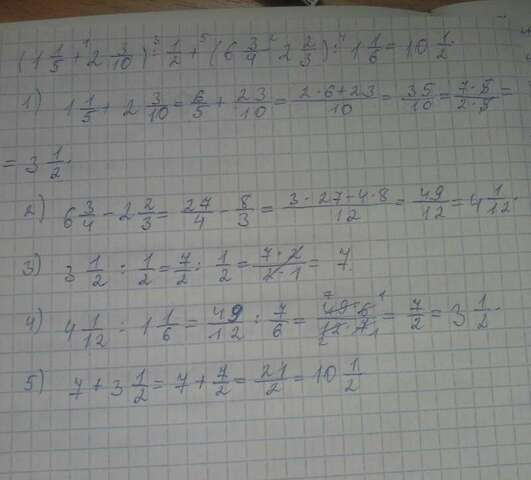 (1 1/5 + 2 3/10) : 1/2 + (6 3/4 - 2 2/3) : 1 1/6 = 10 1/2.
1) 1 1/5 + 2 3/10 = 6/5 + 23/10 = (2·6+23)/10 = 35/10 = (7·5)/(2·5) =
= 3 1/2.
2) 6 3/4 - 2 2/3 = 27/4 - 8/3 = (3·27-4·8)/12 = 49/12 = 4 1/12.
3) 3 1/2 : 1/2 = 7/2 : 1/2 = (7·2)/(2·1) = 7.
4) 4 1/12 : 1 1/6 = 49/12 : 7/6 = (49·6)/(12·7) = 7/2 = 3 1/2.
5) 7 + 3 1/2 = 7 + 7/2 = 21/2 = 10 1/2